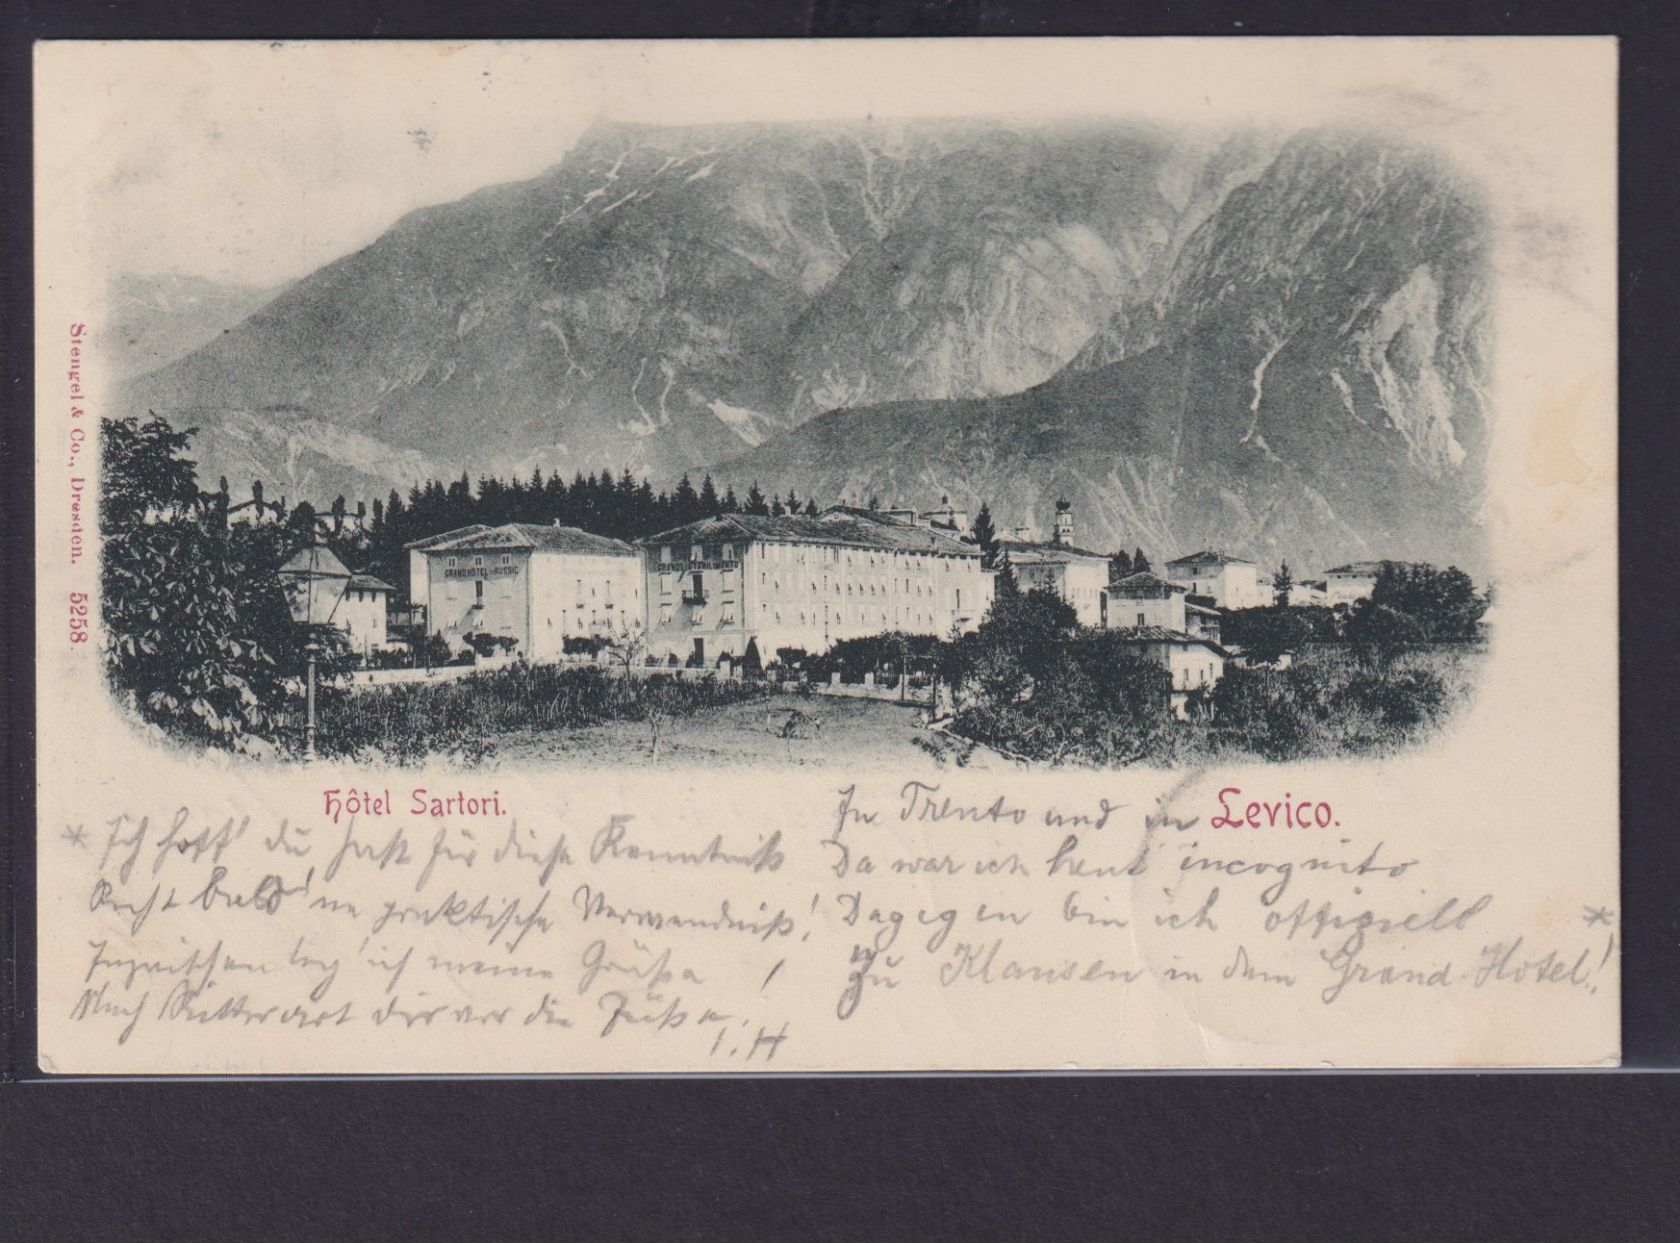 Stengel & Co., Dresden. 5258.
GRAND HOTEL RUSSIE
GRANDE STABILIMENTO
Hôtel Sartori.
Levico.
In Trento und in
Da war ich heut incognito
Dagegen bin ich offiziell *
Zu Klausen in dem Grand-Hôtel!
* Ich hoff' du hast für diese Kenntniß
Recht bald 'ne praktische Verwendniß!
Inzwischen leg' ich meine Grüße
Nach Ritterart dir vor die Füße.